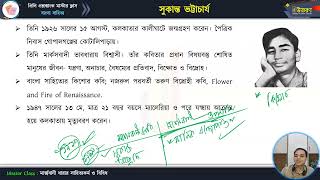 বিসিএস প্রস্তুতি মাস্টার ক্লাস
বাংলা সাহিত্য
সুকান্ত ভট্টাচার্য
তিনি ১৯২৬ সালের ১৫ আগস্ট, কলকাতার কালীঘাটে জন্মগ্রহণ করেন। পৈত্রিক
নিবাস গোপালগঞ্জের কোটালিপাড়ায়।
তিনি মার্কসবাদী ভাবধারায় বিশ্বাসী। তাঁর কবিতার প্রধান বিষয়বস্তু শোষিত
মানুষের জীবন- যন্ত্রণা, অনাচার, বৈষম্যের প্রতিবাদ, বিক্ষোভ ও বিদ্রোহ।
বাংলা সাহিত্যের কিশোর কবি; নজরুল পরবর্তী তরুণ বিদ্রোহী কবি, Flower
and Fire of Renaissance.
১৯৪৭ সালের ১৩ মে, মাত্র ২১ বছর বয়সে ম্যালেরিয়া ও পরে যক্ষ্মায় আক্রান্ত
হয়ে কলকাতায় মৃত্যুবরণ করেন।
Master Class : মার্কসবাদী ধারার সাহিত্যকর্ম ও বিবিধ